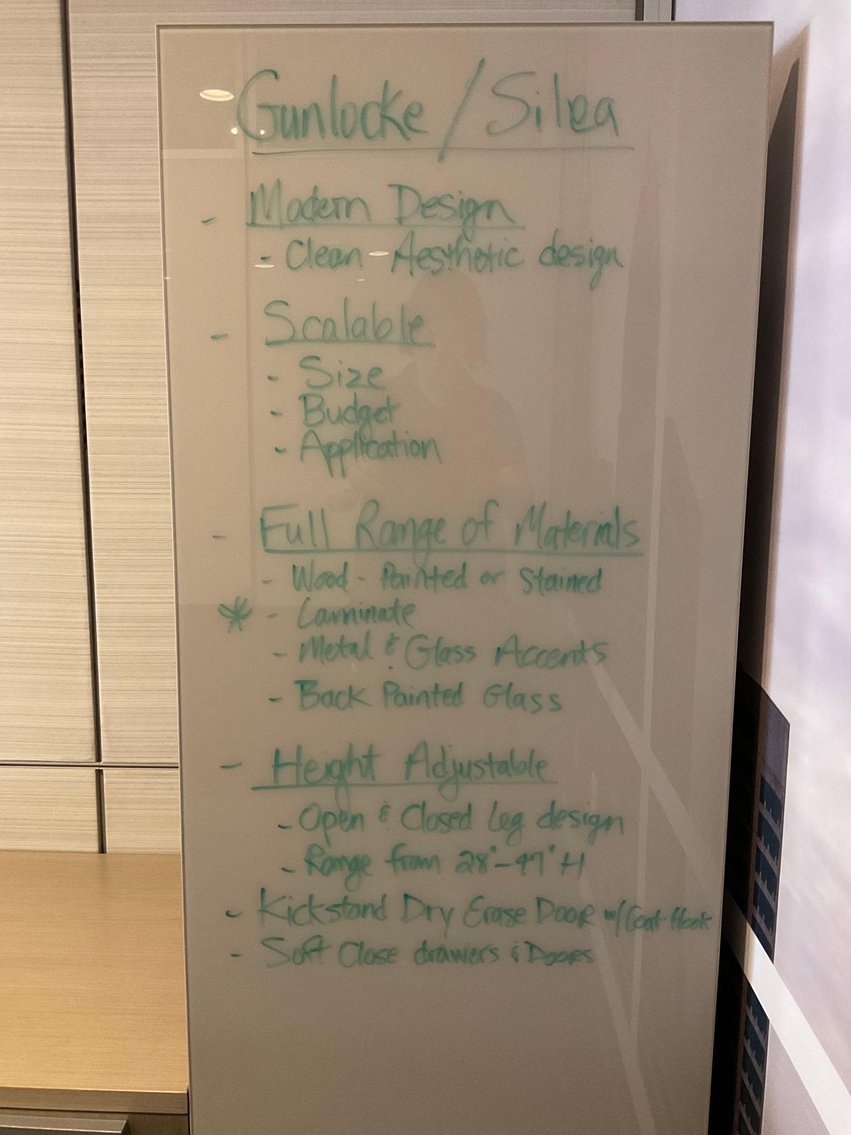 Gunlocke / Silea
- Modern Design
- Clean Aesthetic design
- Scalable
- Size
- Budget
- Application
- Full Range of Materials
- Wood - Painted or Stained
* - Laminate
- Metal & Glass Accents
- Back Painted Glass
- Height Adjustable
- Open & Closed Leg design
- Range from 28"-47" H
- Kickstand Dry Erase Door w/ Coat Hook
- Soft Close drawers & Doors